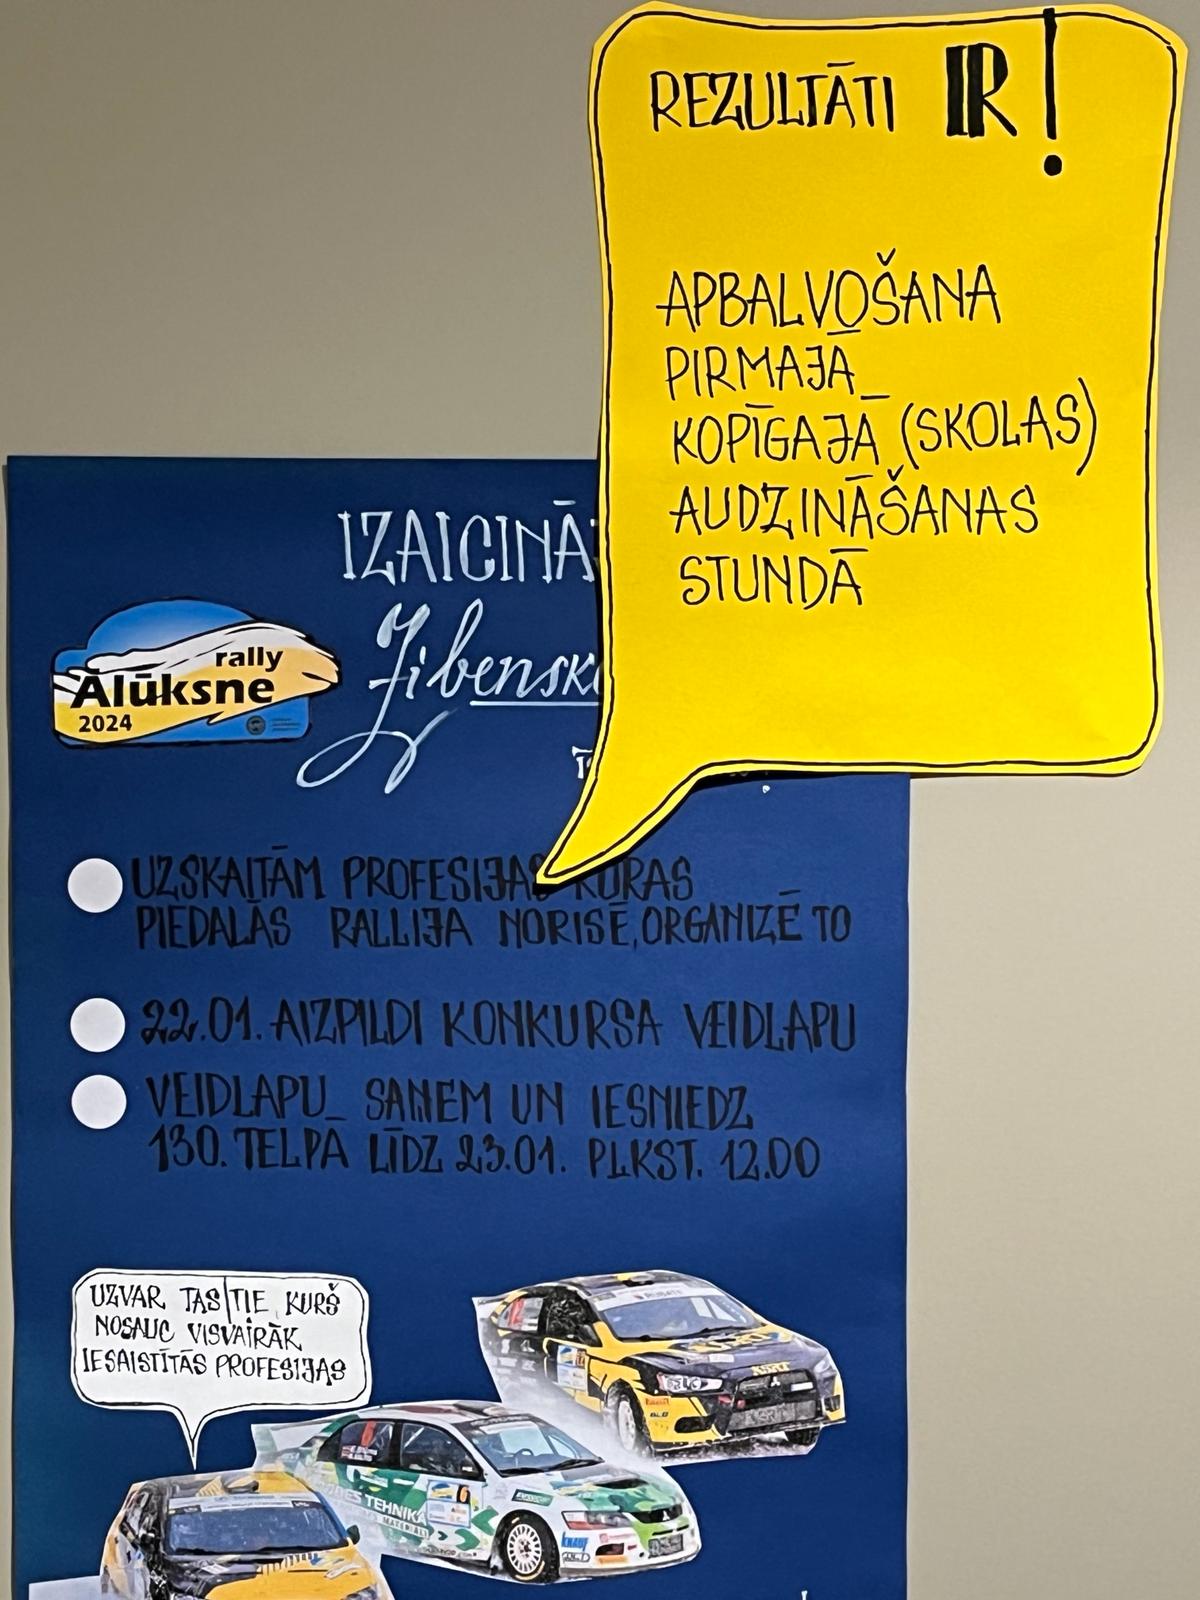 REZULTĀTI IR!
APBALVOŠANA
PIRMAJĀ
KOPĪGAJĀ (SKOLAS)
AUDZINĀŠANAS
STUNDĀ
IZAICINĀ
rally
Alūksne
2024
Zibensko
UZSKAITĀM PROFESIJAS KURAS
PIEDALĀS RALLIJA NORISĒ, ORGANIZĒ TO
22.01. AIZPILDI KONKURSA VEIDLAPU
VEIDLAPU SAŅEM UN IESNIEDZ
130. TELPĀ LĪDZ 23.01. PLKST. 12.00
UZVAR TAS/TIE, KURŠ
NOSAUC VISVAIRĀK
IESAISTĪTĀS PROFESIJAS
TEHNIKA
6